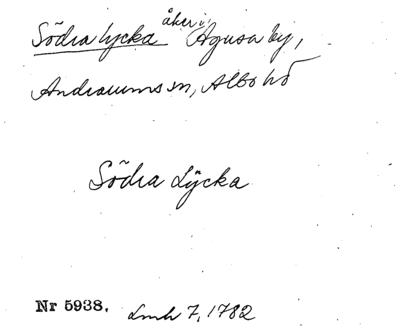 Södra lycka åker i Agusa by,
Andrarums sn, Albo hd
Södra Lÿcka
Nr 5938. Lmh 7, 1782